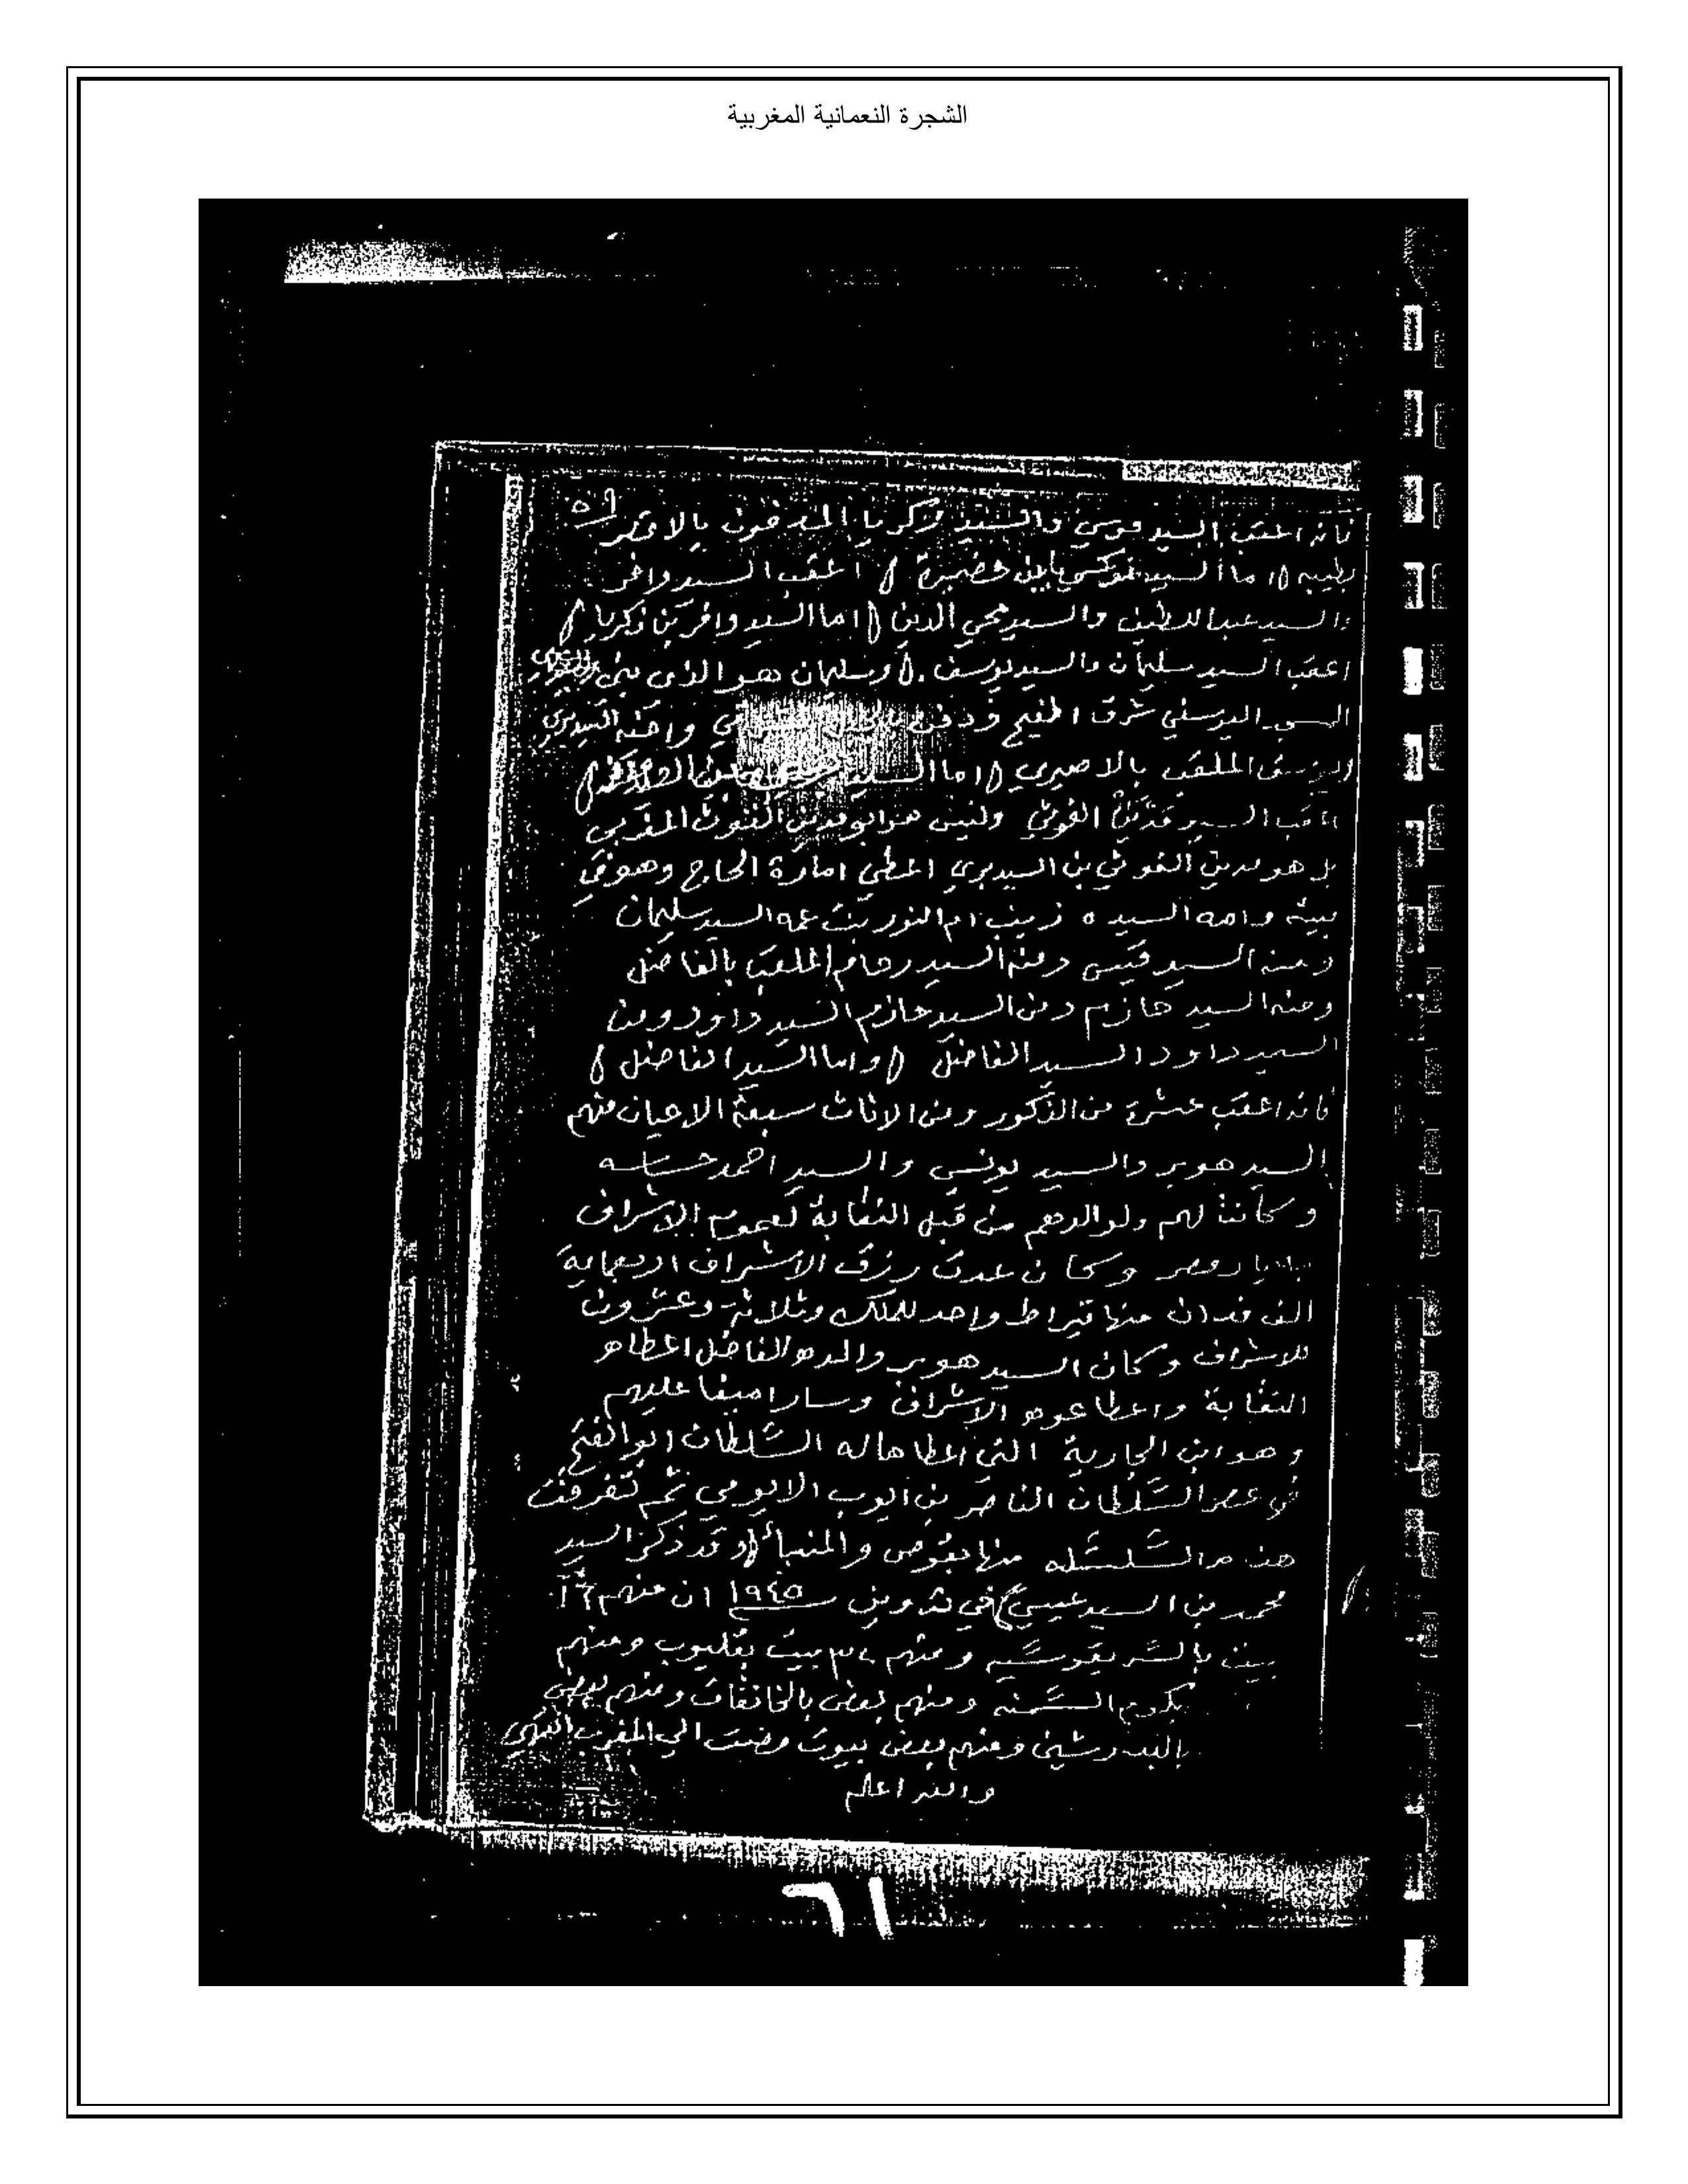 الشجرة النعمانية المغربية
فانه اعقب السيد موسي والسيد زكريا المدفون بالاقصر
اعقب السيد وافر
والسيد عبد اللطيف والسيد محي الدين اما السيد وافر بن زكريا
اعقب السيد سليمان والسيد يوسف . وسليمان هو الذى بنى
واخته السيد بري
الملقب بالاصيري اما السيد
السيد مدين الغوثي وليس هو ابو مدين الغوث المغربي
بل هو مدين الغوثي بن السيد بري اعطي امارة الحاج وهو في
بيته وامه السيده زينب ام النور بنت عمه السيد سليمان
ومنه السيد قيسي ومنه السيد رحام الملقب بالفاضل
ومنه السيد حازم ومن السيد حازم السيد داود ومن
السيد داود السيد الفاضل واما السيد الفاضل
فانه اعقب عشرة من الذكور ومن الاناث سبعة الاعيان منهم
السيد هوير والسيد يونس والسيد احمد حساسه
وكانت لهم ولوالدهم من قبل النقابة لعموم الاشراف
بديار مصر وكان عدت رزق الاشراف اربعماية
الف فدان منها قيراط واحد للملك وثلاثة وعشرون
للاشراف وكان السيد هوير والده الفاضل اعطاه
النقابة واعطاعوه الاشراف وسار امينا عليهم
وهو ابن الجارية التى اعطاها له السلطان ابو الفتح
في عصر السلطان الناصر بن ايوب الايوبي ثم تفرقت
هذه السلسله منها بقوص والمنيا وقد ذكر السيد
محمد بن السيد عيسي في تدوين سنة ١٩٤٥ ان منهم ١٦
بيت بالشريقوسيه ومنهم ٣٠ بيت بقليوب ومنهم
بكوم السمنه ومنهم بعض بالخانقات ومنهم بعض
البدرشين ومنهم بعض بيوت مضت الي المغرب
والله اعلم
٦١